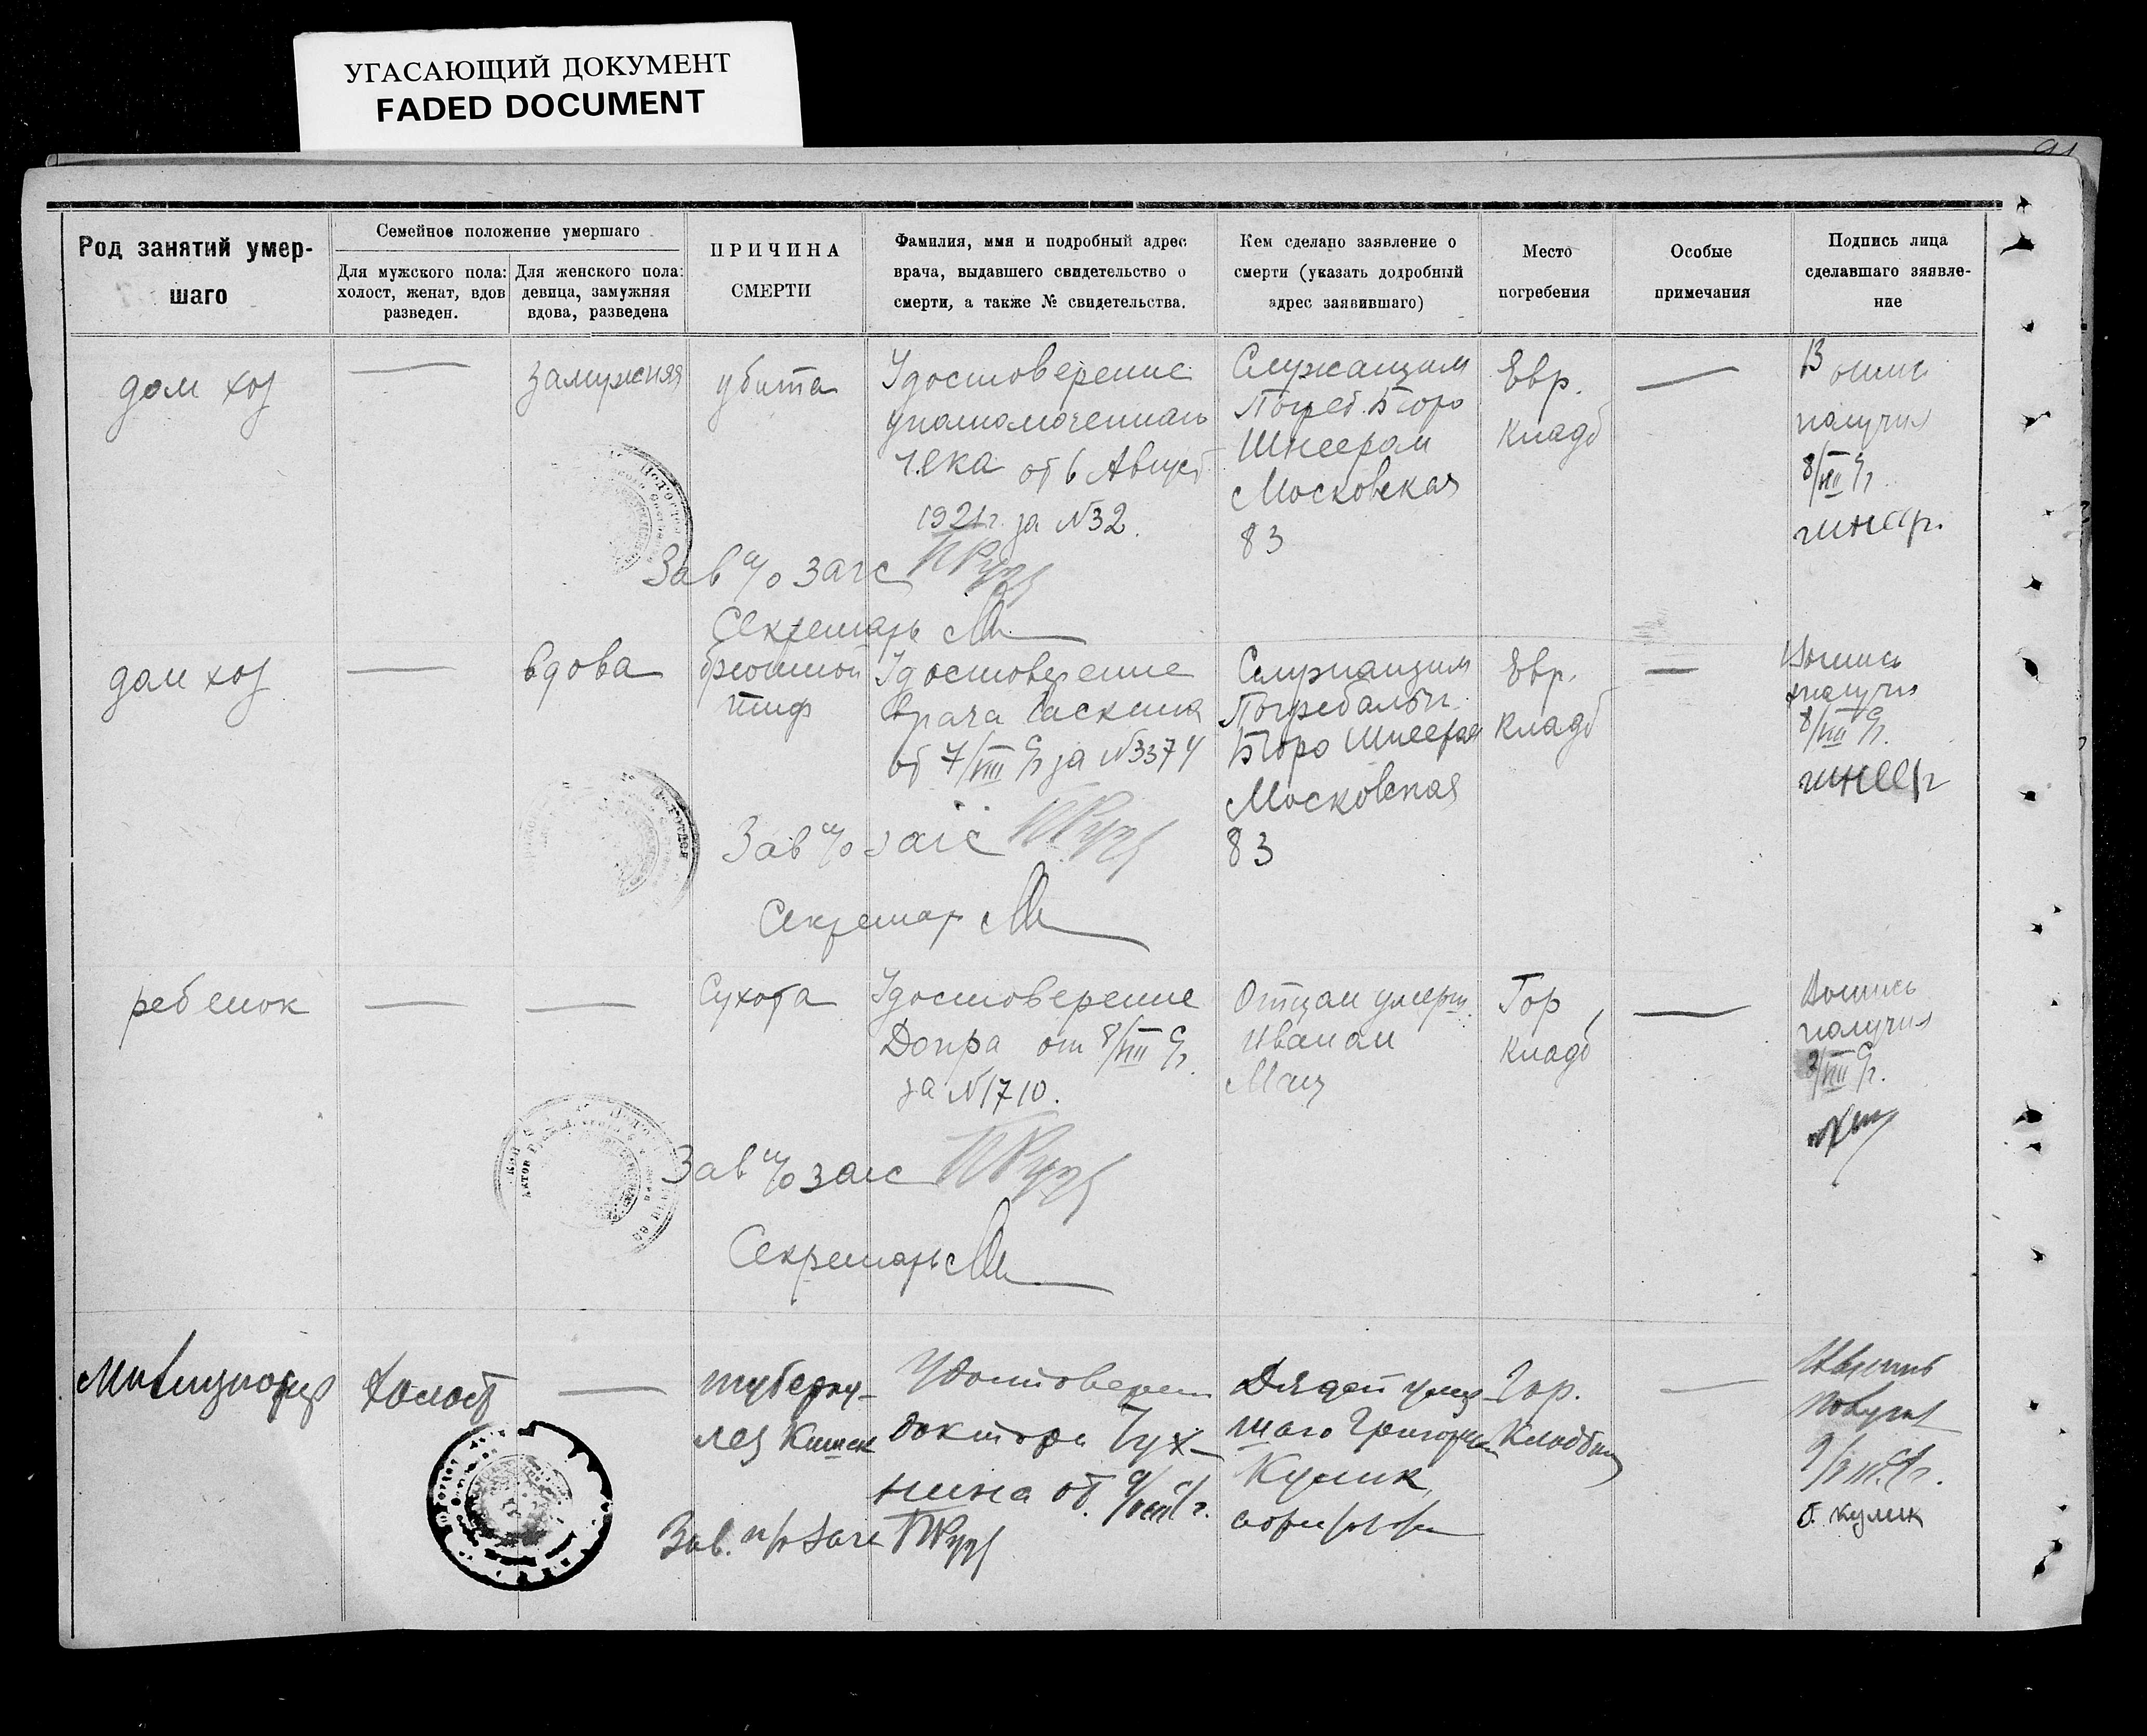 УГАСАЮЩИЙ ДОКУМЕНТ
FADED DOCUMENT
91
Род занятий умер-
шаго
Семейное положение умершаго
Для мужского пола:
холост, женат, вдов
разведен.
Для женского пола:
девица, замужняя
вдова, разведена
ПРИЧИНА
СМЕРТИ
Фамилия, имя и подробный адрес
врача, выдавшего свидетельство о
смерти, а также № свидетельства.
Кем сделано заявление о
смерти (указать додробный
адрес заявившаго)
Место
погребения
Особые
примечания
Подпись лица
сделавшаго зяявле-
ние
дом хоз
замужняя
убита
Удостоверение
уполномоченнаго
чека от 6 Август
1921 г. за №32.
Служащим
Погреб. Бюро
Шнеером
Московская
83
Евр.
Кладб
получил
8/VIII
Шнеер.
Зав п/о загс
Секретарь
дом хоз
вдова
брюшной
тиф
Удостоверение
врача Гаскина
от 7/VIII за №3374
Служащим
Погребальн.
Бюро Шнеером
Московская
83
Евр.
Кладб
получил
8/VIII
Шнеер
Зав п/о загс
Секретар
ребенок
Сухота
Удостоверение
Допра от 8/VIII
за №1710.
Отцом умерш.
Иваном
Гор
Кладб
получил
8/VIII
Зав п/о загс
Секретарь
Милиционер
Холост
туберку-
лез Кишек
Удостоверен
доктора Тух-
нина от
Дядей умер
шаго Григорием
Кулик
Гор.
Кладбищ
получил
Кулик
Зав. п/о Загс